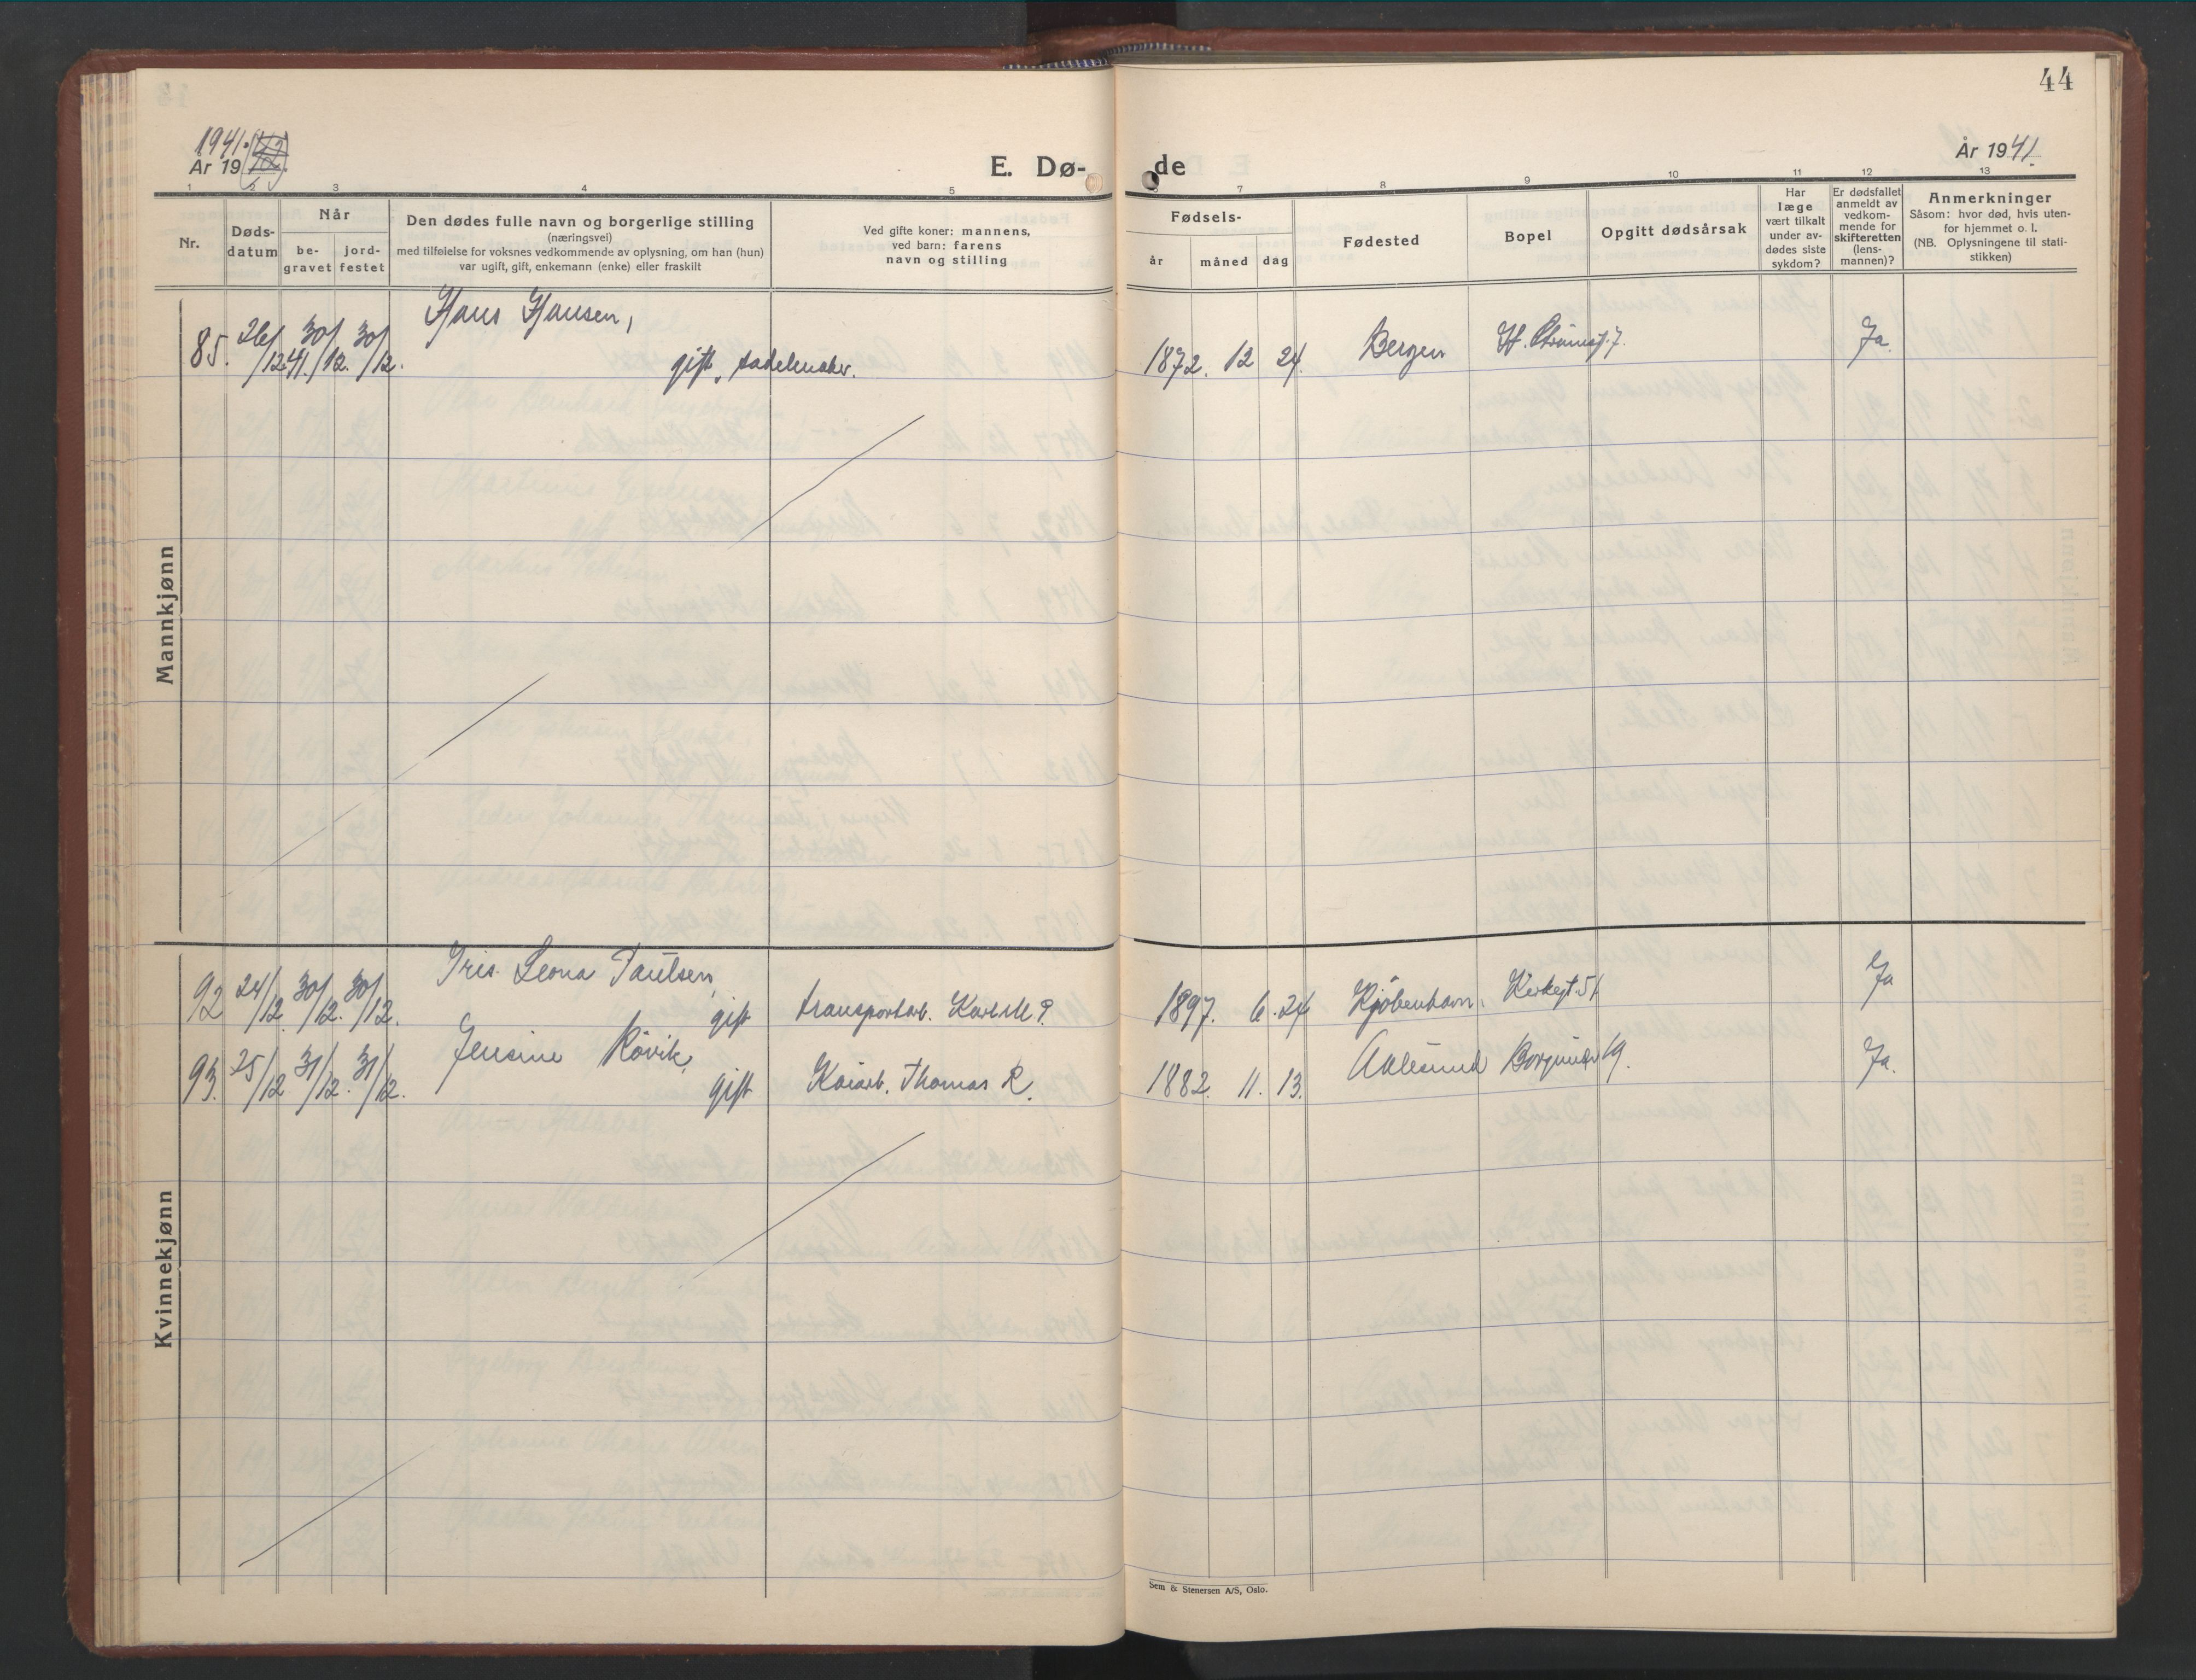 44
1941.
År 19
E. Dø-
de
År 1941.
1 2 3 4 5 7 8 9 10 11 12 13
Nr.
Døds-
datum
Når
be-
gravet
jord-
festet
Den dødes fulle navn og borgerlige stilling
(næringsvei)
med tilføielse for voksnes vedkommende av oplysning, om han (hun)
var ugift, gift, enkemann (enke) eller fraskilt
Ved gifte koner: mannens,
ved barn: farens
navn og stilling
Fødsels-
år måned dag
Fødested
Bopel
Opgitt dødsårsak
Har
læge
vært tilkalt
under av-
dødes siste
sykdom?
Er dødsfallet
anmeldt av
vedkom-
mende for
skifteretten
(lens-
mannen)?
Anmerkninger
Såsom: hvor død, hvis uten-
for hjemmet o. l.
(NB. Oplysningene til stati-
stikken)
Mannkjønn
Hans Hansen,
85. 26/12.41. 30/12. 30/12. gift, sadelmaker. 1872. 12 24. Bergen Ja.
Kvinnekjønn
Iris Leona Paulsen,
92 24/12. 30/12. 30/12. gift transportarb. Karl M P. 1897. 6. 24 Kjøbenhavn. Kirkegt. 51 Ja
Jensine Røvik,
93. 25/12 31/12. 31/12. gift Kaiarb. Thomas R. 1882. 11. 13. Aalesund Borgundv 19. Ja.
Sem & Stenersen A/S, Oslo.